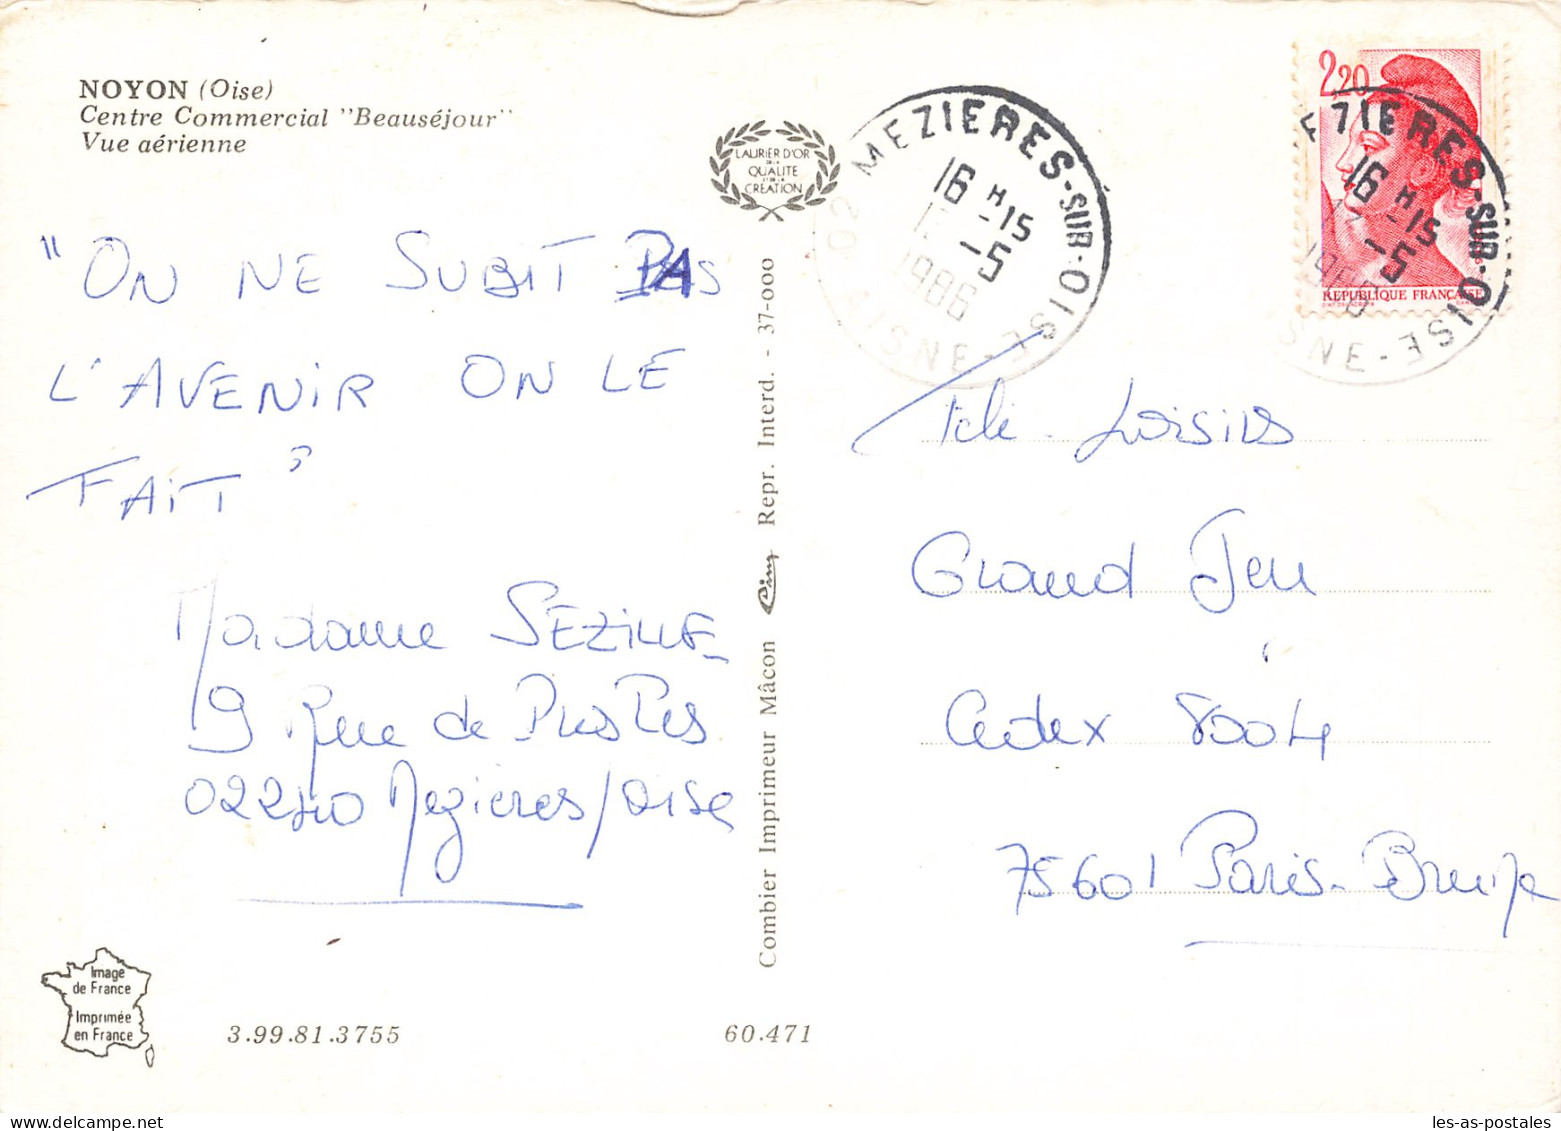 NOYON (Oise)
Centre Commercial "Beauséjour"
Vue aérienne
LAURIER D'OR
DE LA
QUALITE
ET DE LA
CREATION
02 MEZIERES-SUR-OISE
16 H 15
-5
1986
AISNE
2,20
EZIERES-SUR-OISE
16 H 15
-5
1986
SNE
REPUBLIQUE FRANÇAISE
"ON NE SUBIT PAS
L'AVENIR ON LE
FAIT"
Madame SEZILLE
9 Rue de
02240 Mezieres/oise
Combier Imprimeur Mâcon Cim Repr. Interd. - 37-000
Télé-Loisirs
Grand Jeu
Cedex 8004
75601 Paris-Brune
Image
de France
Imprimée
en France
3.99.81.3755
60.471
les-as-postales